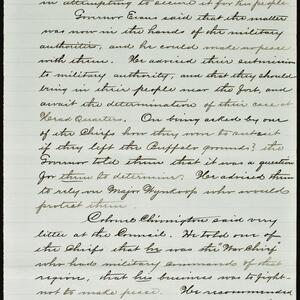 in attempting to secure it for his people.
Governor Evans said that the matter
was now in the hands of the military
authorities, and he could make no peace
with them. He advised their submission
to military authority, and that they should
bring in their people near the fort, and
await the determination of their case at
Head Quarters. On being asked by one
of the Chiefs how they were to subsist
if they left the Buffalo grounds? the
Governor told them that it was a question
for them to determine? He advised them
to rely on Major Wynkoop who would
protect them.
Colonel Chivington said very
little at the Council. He told one of
the Chiefs that he was the "War Chief"
who had military command of that
region, that his business was to fight-
not to make peace. He recommended